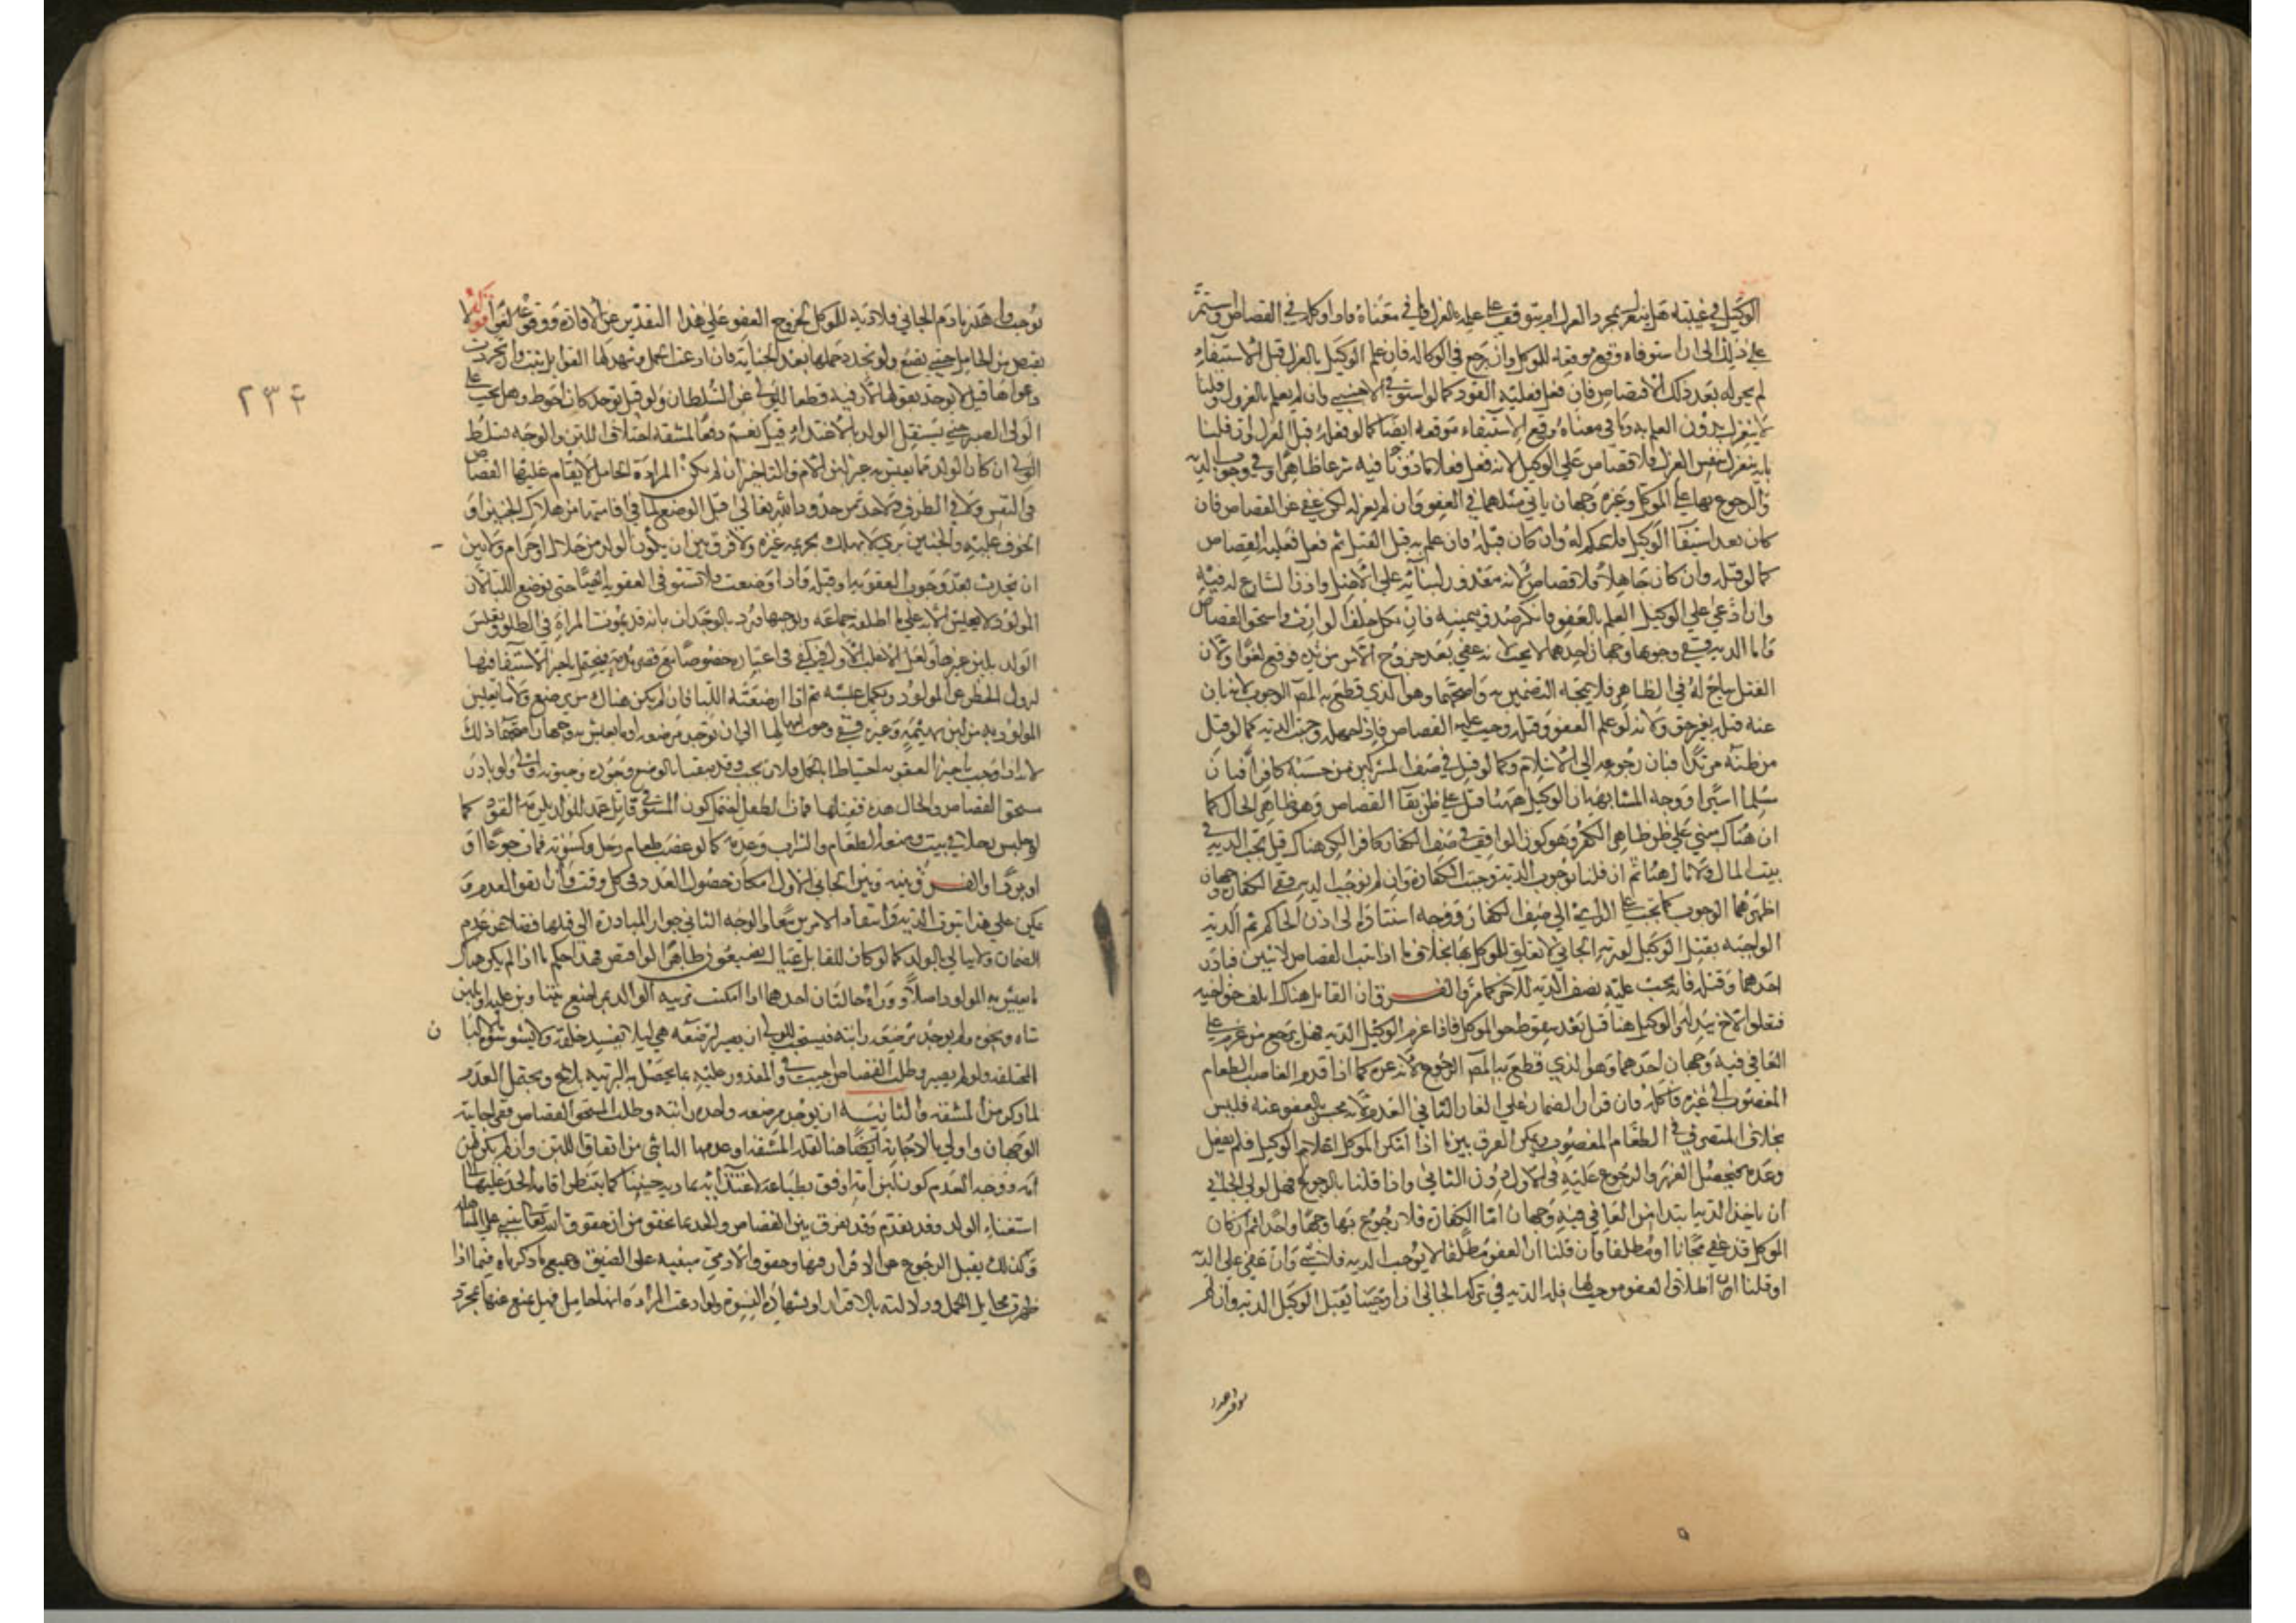 الوكيل في غيبته هل ينعزل بمجرد العزل او يتوقف على علمه بالعزل وما في معناه فاذا وكله في القصاص واستمر
على ذلك الى ان استوفاه وقع موقعه للموكل وان رجع في الوكالة فان علم الوكيل بالعزل قبل الاستيفاء
لم يجز له بعد ذلك الاقتصاص فان فعل فعليه القود كما لو استوفى الاجنبي وان لم يعلم بالعزل وقلنا
لا ينعزل بدون العلم به وما في معناه وقع الاستيفاء موقعه ايضا كما لو فعله قبل العزل وان قلنا
بانه ينعزل بنفس العزل فلا قصاص على الوكيل لانه فعل فعلا ماذونا فيه شرعا ظاهرا وفي وجوب الدية
والرجوع بها على الموكل وغيره وجهان ياتي مثلهما في العفو وان لم يعزله لكن عفى عن القصاص فان
كان بعد استيفاء الوكيل فلا حكم له وان كان قبله فان علم به قبل القتل ثم فعل فعليه القصاص
كما لو قتله وان كان جاهلا فلا قصاص لانه معذور لبنائه على الاصل واذن الشارع له فيه
وان ادعى على الوكيل العلم بالعفو فانكر صدق بيمينه فان نكل حلف الوارث واستحق القصاص
واما الدية ففي وجوبها وجهان احدهما لا يجب لانه عفى بعد خروج الامر من يده فوقع لغوا ولان
القتل مباح له في الظاهر فلا يتجه التضمين به واصحهما وهو الذي قطع به المص الوجوب لانه بان
عنه قتل بغير حق ولانه لو علم العفو وقتله وجب عليه القصاص فاذا جهله وجبت الدية كما لو قتل
من ظنه مرتدا فبان رجوعه الى الاسلام وكما لو قتل في صف المشركين من حسبه كافرا فبان
مسلما اسيرا ووجه المشابهة ان الوكيل ههنا قتل على ظن بقاء القصاص وهو ظاهر الحال كما
ان هناك بنى على ظن ظاهر الكفر وهو كون الواقف في صف الكفار كافرا لكن هناك قيل تجب الدية في
بيت المال ولا مال هنا ثم ان قلنا بوجوب الدية وجبت الكفارة وان لم نوجب الدية ففي الكفارة وجهان
اظهرهما الوجوب كما تجب على الرامي الى صف الكفار ووجه استناده الى اذن الحاكم ثم الدية
الواجبة بقتل الوكيل لورثة الجاني لا تعلق للموكل بها بخلاف ما اذا ثبت القصاص لاثنين فبادر
احدهما وقتله فانه يجب عليه نصف الدية للاخر كما مر والفرق ان القاتل هناك اتلف حق اخيه
فتعلق الاخ ببدله والوكيل هنا قتل بعد سقوط حق الموكل فاذا غرم الوكيل الدية فهل يرجع من غرم على
العافي فيه وجهان احدهما وهو الذي قطع به المص الرجوع لانه غره كما اذا قدم الغاصب الطعام
المغصوب الى غيره فاكله فان قرار الضمان على الغار والثاني العدم لانه محسن بالعفو عنه فليس
بخلاف المتصرف في الطعام المغصوب ويمكن الفرق بين ما اذا امكن الموكل اعلام الوكيل فلم يفعل
وعدمه فيحصل الغرر والرجوع عليه في الاول دون الثاني واذا قلنا بالرجوع فهل لولي الجاني
ان ياخذ الدية ابتدا من العافي فيه وجهان اما الكفارة فلا رجوع بها وجها واحدا ثم ان كان
الموكل قد عفى مجانا او مطلقا وان قلنا ان العفو مطلقا لا يوجب الدية فلا شي وان عفى على الدية
او قلنا ان اطلاق العفو موجب لها فله الدية في تركة الجاني اذا اوجبنا بقتل الوكيل الدية وان لم
نوجبها
٢٣٤
نوجبها وهدرنا دم الجاني فلا دية للموكل لخروج العفو على هذا التقدير عن الافادة ووقوعه لغوا قوله ولا
يقتص من الحامل حتى تضع ولو تجدد حملها بعد الجناية فان ادعت الحمل وشهد لها القوابل ثبت وان تجردت
دعواها قيل لا يوخذ بقولها لان فيه دفعا للولي عن السلطان ولو قيل يوخذ كان احوط وهل يجب على
الولي الصبر حتى يستقل الولد بالاغتذاء قيل نعم دفعا لمشقة اختلاف اللبن والوجه تسلط
الولي ان كان للولد ما يعيش به غير لبن الام والتاخير ان لم يكن المراة الحامل لا يقام عليها القصاص
في النفس ولا في الطرف ولا حد من حدود الله تعالى قبل الوضع لما في اقامتها من هلاك الجنين او
الخوف عليه والجنين بري لا يهلك بجريمة غيره ولا فرق بين ان يكون الولد من حلال او حرام ولا بين
ان يحدث بعد وجوب العقوبة او قبله فاذا وضعت فلا تستوفى العقوبة ايضا حتى ترضع اللبا لان
المولود لا يعيش الا به على ما اطلقه جماعة
الولد بلبن غيرها ولعل الاغلب الاول فيكفي في اعتباره خصوصا مع قصر مدته فيحتمل تاخير الاستيفاء فيها
لزوال الخطر عن المولود ويكمل عليه ثم اذا ارضعته اللبا فان لم يكن هناك من يرضع ولا ما يعيش
المولود به من لبن بهيمة وغيره ففي وجوب امهالها الى ان توجد مرضعة او ما يعيش به وجهان اصحهما ذلك
لانه اذا وجب تاخير العقوبة احتياطا للحمل فلان يجب وقد تيقنا بالوضع وجوده وحيوته اولى ولو بادر
مستحق القصاص والحال هذه فقتلها فمات الطفل احتمل كون المستوفي قاتل عمد للولد يلزمه القود كما
لو حبس رجلا في بيت ومنعه الطعام والشراب وعدمه كما لو غصب طعام رجل وكسوته فمات جوعا او
او بردا والفرق بينه وبين الجاني الاول امكان حصول العدد في كل وقت
يمكن على هذا ثبوت الدية وانتفاء الامرين معا والوجه الثاني جواز المبادرة الى قتلها فضلا عن عدم
الضمان ولا يبالي بالولد كما لو كان للقاتل عيال يضيعون ظاهرا لو اقتص فهذا حكم ما اذا لم يكن هناك
ما يعيش به المولود اصلا ووراه حالتان احدهما اذا امكنت تربية الولد بمراضع
شاة ونحوه ولم يوجد مرضعة راتبة فيستحب للولي ان يصبر لترضعه هي ليلا يفسد خلقه ولا يشو بالالبان
المختلفة ولو لم يصبر وطلب القصاص اجيب والمعذور عليه بما يحصل به التربية بلبنه ويحتمل العدم
لما ذكر من المشقة والثانية ان يوجد مرضعة واحدة راتبة وطلب المستحق القصاص ففي اجابته
الوجهان واولى بالاجابة ايضا هنا لفقد المشقة او عدمها الناشي من اتفاق اللبن وان لم يكن لبن
امه ووجه العدم كون لبن امه اوفق بطباعه لاغتذائه بمادته جنينا كما ينتظر اقامة الحد عليها الى
استغناء الولد وقد تقدم وقد يفرق بين القصاص والحد بما تحقق من ان حقوق الله تعالى تبنى على المساهلة
وكذلك يقبل الرجوع عن الاقرار فيها وحقوق الادمي مبنية على الضيق وجميع ما ذكرناه فيما اذا
ظهرت مخايل الحمل ودلالته بالاقرار او بشهادة النسوة ولو ادعت المراة انها حامل فهل يمنع عنها بمجرد